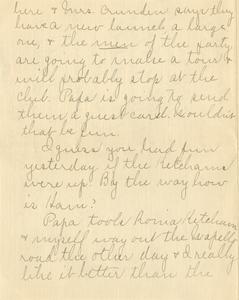 here & Mrs. Crunden says they
have a new launch, a large
one, & the men of the party
are going to make a tour &
will probably stop at the
club. Papa is going to send
them a guest card. Wouldn't
that be fun.
I guess you had fun
yesterday if the Ketchams
were up. By the way how
is Ham?
Papa took Roma Ketcham
& myself way out the
road the other day & I really
like it better than the